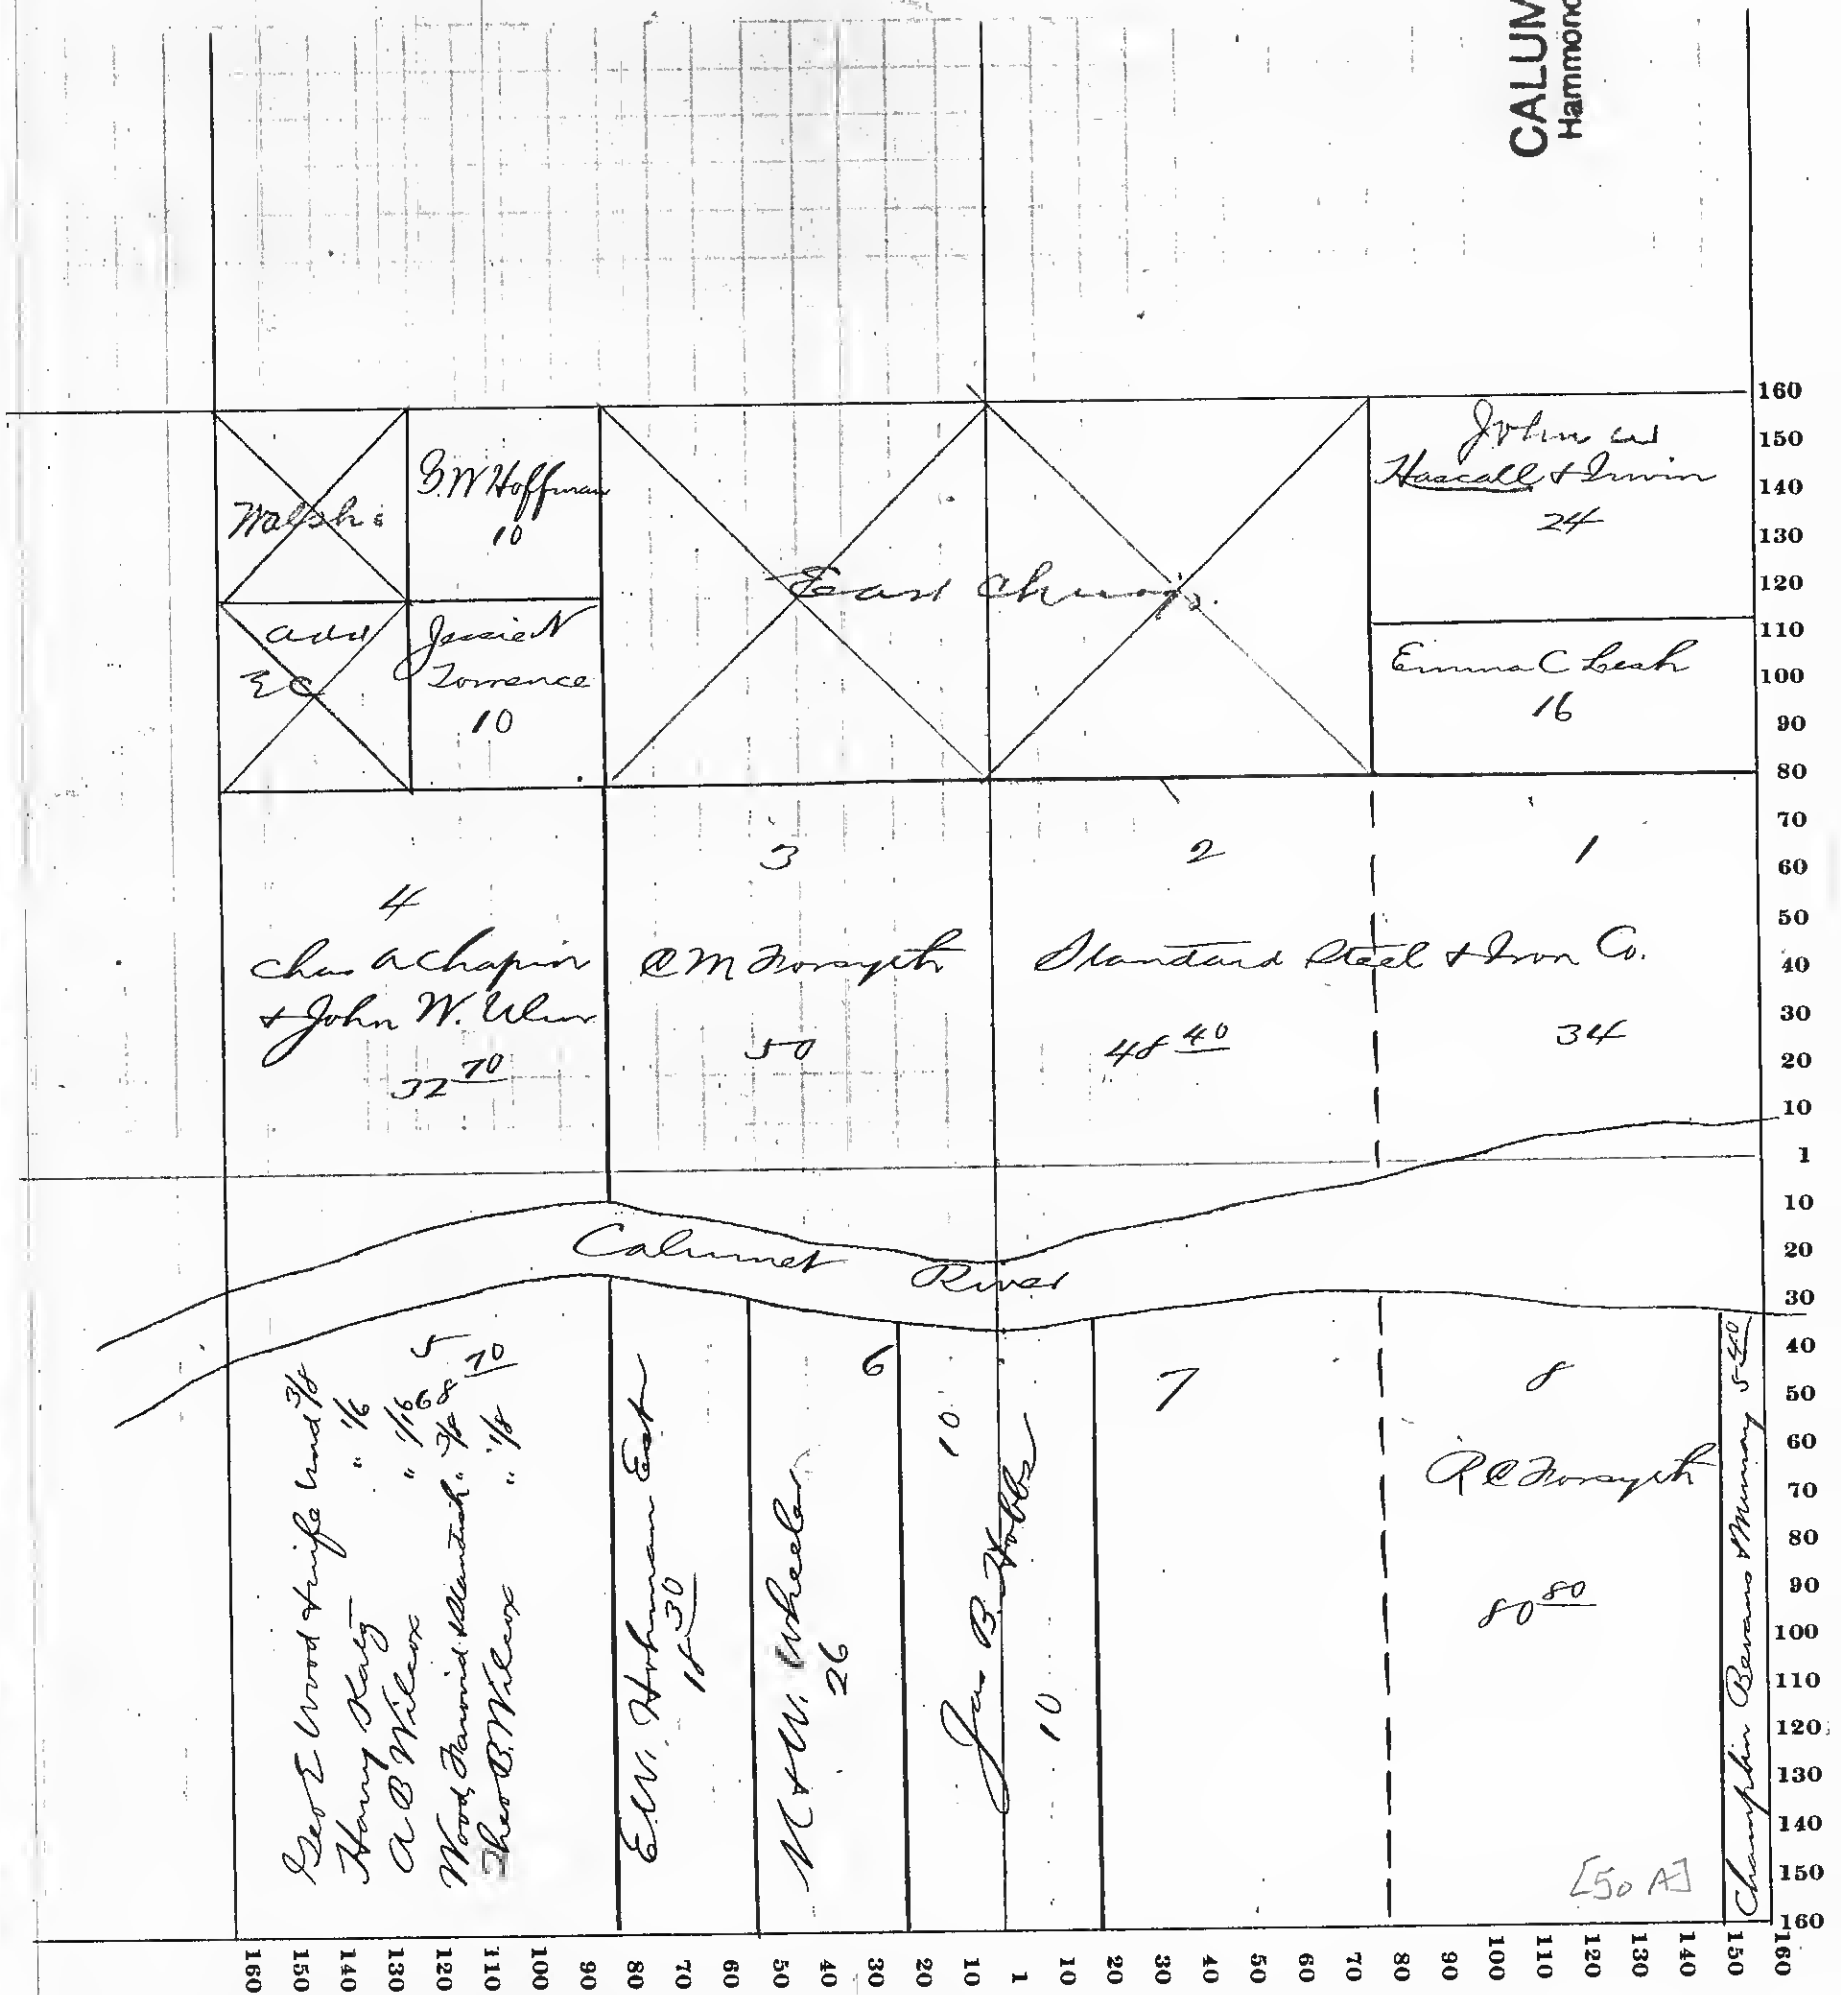 CALUM
Hammond
Walsh's
G.W Hoffman
10
East Chicago.
John W
Hascall & Irwin
24
add
E C
Jessie N
Torrence
10
Emma C Lesh
16
4
Chas A Chapin
& John W.
32 70
3
C M Forsyth
50
2
1
Standard Steel & Iron Co.
48 40
34
Calumet River
Geo E Wood & wife Und 3/8
Harry Katz " 1/6
A B Wilcox " 1/16
Wood, " 3/8
Theo B. Wilcox " 1/8
5
68 70
E.W. Hohman Est
18 30
M & W. Wheeler
26
6
10
Jas B. Hobbs
10
7
8
R C Forsyth
80 80
[50 A]
Champlin Bevans & Murray 5 40
160
150
140
130
120
110
100
90
80
70
60
50
40
30
20
10
1
10
20
30
40
50
60
70
80
90
100
110
120
130
140
150
160
160 150 140 130 120 110 100 90 80 70 60 50 40 30 20 10 1 10 20 30 40 50 60 70 80 90 100 110 120 130 140 150 160